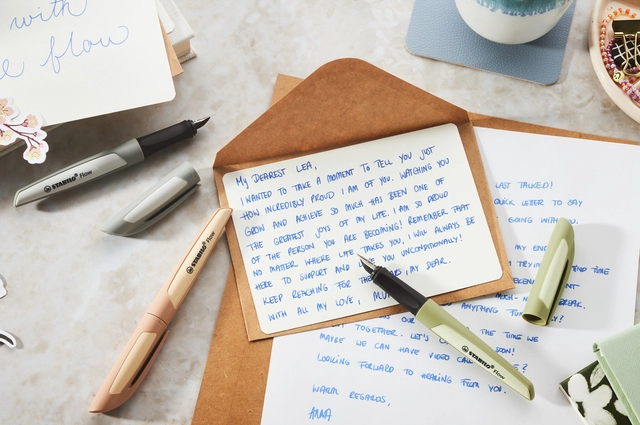 with
e flow
STABILO flow
STABILO flow
My DEAREST LEA,
I WANTED TO TAKE A MOMENT TO TELL YOU JUST
HOW INCREDIBLY PROUD I AM OF YOU. WATCHING YOU
GROW AND ACHIEVE SO MUCH HAS BEEN ONE OF
THE GREATEST JOYS OF MY LIFE. I AM SO PROUD
OF THE PERSON YOU ARE BECOMING! REMEMBER THAT
NO MATTER WHERE LIFE TAKES YOU, I WILL ALWAYS BE
HERE TO SUPPORT AND YOU UNCONDITIONALLY!
KEEP REACHING FOR THE , MY DEAR.
WITH ALL MY LOVE,
STABILO flow
LAST TALKED!
QUICK LETTER TO SAY
GOING WITH
MY
TIME
BREAK.
TOGETHER. LET'S THE TIME WE
MAYBE WE CAN HAVE VIDEO SOON!
LOOKING FORWARD TO HEARING FROM YOU.
WARM REGARDS,
ANNA